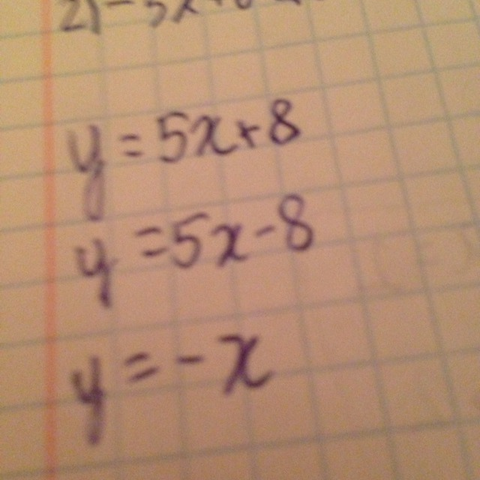 y = 5x + 8
y = 5x - 8
y = - x